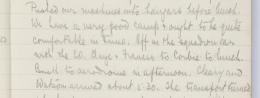 Pushed our machines into hangars before lunch.
We have a very good camp & ought to be quite
comfortable in time. Off in the Squadron car
with the C.O., Guyc & Francis to Corbie to lunch.
Back to aerodrome in afternoon. Cleary and
Watson arrived about 5.30. The transport turned